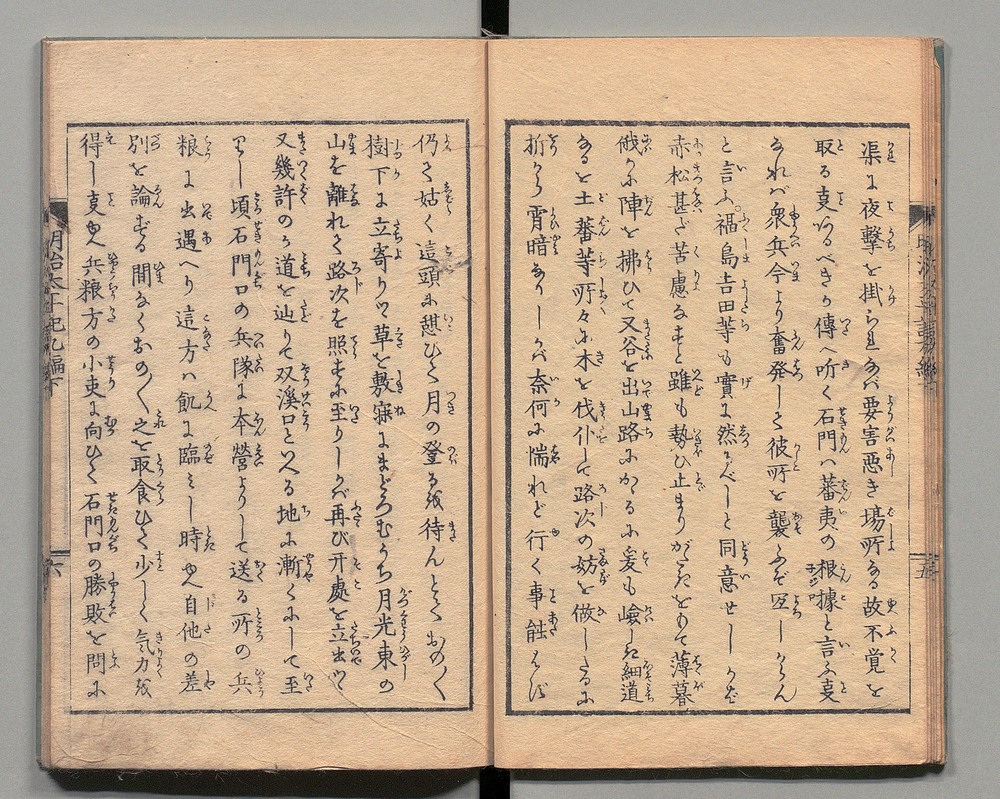 渠に夜撃を掛られなバ要害悪き場所なる故不覚を
取る事あるべきか傳へ听く石門ハ蕃夷の根據と言ふ事
なれバ衆兵今より奮発して彼所を襲ふぞ宜しからん
と言ふ。福島吉田等も實に然るべしと同意せしかど
赤松甚だ苦慮なすと雖も勢ひ止まりがたきをもて薄暮
俄かに陣を拂ひて又谷を出山路にかかるに爰も嶮しき細道
なると土蕃等所々に木を伐仆して路次の妨を做したるに
折から宵暗なりしかバ奈何に惴れど行く事能はず
仍て姑く這頭に憩ひて月の登るを待んとておの〱
樹下に立寄りツ草を敷寐にまどろむうち月光東の
山を離れて路次を照すに至りしかバ再び开處を立出て
又幾許の道を辿りて双溪口といへる地に漸くにして至
りし頃石門口の兵隊に本營よりして送る所の兵
粮に出遇へり這方ハ飢に臨みし時也自他の差
別を論ずる間なくおの〱之を取食ひて少しく気力を
得し事也兵粮方の小吏に向ひて石門口の勝敗を問に
明治太平記九編下
五
六